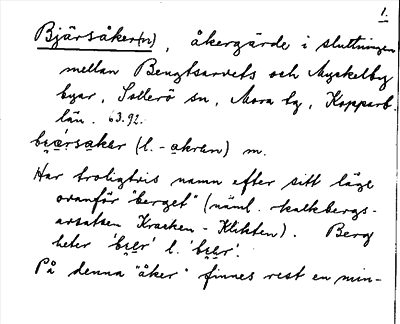 1.
Bjärsåker(n), åkergärde i sluttningen
mellan Bengtsarvets och Myckelby
byar, Sollerö sn, Mora tg, Kopparb.
län. 63.92.
(l. -akren) m.
Har troligtvis namn efter sitt läge
ovanför "berget" (näml. kalkbergs-
avsatsen Kracken - Klikten). Berg
heter l.
På denna "åker" finnes rest en min-